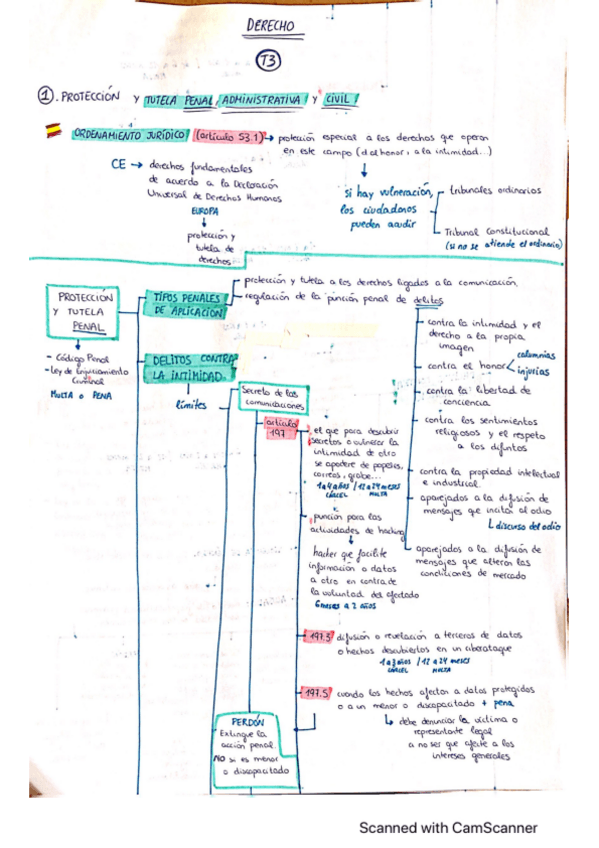 DERECHO
T3
1. PROTECCIÓN Y TUTELA PENAL, ADMINISTRATIVA Y CIVIL
ORDENAMIENTO JURÍDICO (artículo 53.1) → protección especial a los derechos que operan
en este campo (d. al honor, a la intimidad...)
CE → derechos fundamentales
de acuerdo a la Declaración
Universal de Derechos Humanos
EUROPA
protección y
tutela de
derechos
si hay vulneración,
los ciudadanos
pueden acudir
tribunales ordinarios
Tribunal Constitucional
(si no se atiende el ordinario)
PROTECCIÓN
Y TUTELA
PENAL
- Código Penal
- Ley de Enjuiciamiento
Criminal
MULTA o PENA
TIPOS PENALES
DE APLICACIÓN
protección y tutela a los derechos ligados a la comunicación.
regulación de la punción penal de delitos
contra la intimidad y el
derecho a la propia
imagen
contra el honor
calumnias
injurias
contra la libertad de
conciencia
contra los sentimientos
religiosos y el respeto
a los difuntos
contra la propiedad intelectual
e industrial.
aparejados a la difusión de
mensajes que incitan al odio
discurso del odio
aparejados a la difusión de
mensajes que alteran las
condiciones de mercado
DELITOS CONTRA
LA INTIMIDAD.
límites
Secreto de las
comunicaciones
artículo
197
el que para descubrir
secretos o vulnerar la
intimidad de otro
se apodere de papeles,
correos, grabe...
1 a 4 años / 12 a 24 meses
CÁRCEL MULTA
punción para las
actividades de hacking
hacker que facilite
información o datos
a otro en contra de
la voluntad del afectado
6 meses a 2 años
197.3 difusión o revelación a terceros de datos
o hechos descubiertos en un ciberataque
1 a 3 años / 12 a 24 meses
CÁRCEL MULTA
197.5 cuando los hechos afectan a datos protegidos
o a un menor o discapacitado + pena
debe denunciar la víctima o
representante legal
a no ser que afecte a los
intereses generales
PERDÓN
Extingue la
acción penal.
NO si es menor
o discapacitado
Scanned with CamScanner